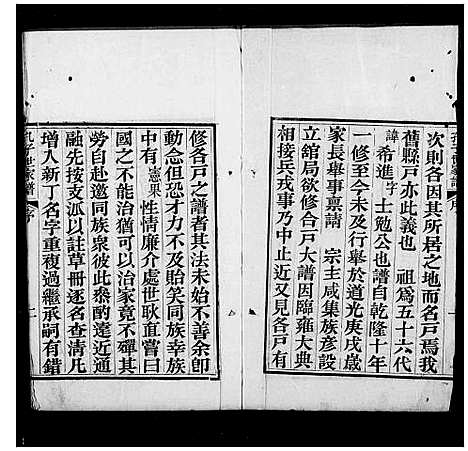 次則各因其所居之地而名戶焉我
舊縣戶亦此義也 祖爲五十六代
諱希進字士勉公也譜自乾隆十年
一修至今未及行舉於道光庚戌歲
家長舉事稟請 宗主咸集族彥設
立舘局欲修合戶大譜因臨雍大典
相接兵戎事乃中止近又見各戶有
修各戶之譜者其法未始不善余卽
動念但恐才力不及貽笑同族幸族
中有憲果性情廉介處世耿直嘗曰
國之不治能治家竟不殫其
勞自赴邀同族衆彼此叅酌遠近通
融先按支派以註草冊逐名查清凡
增入新丁名字重複過繼承嗣有錯
孔子世家譜 序 二